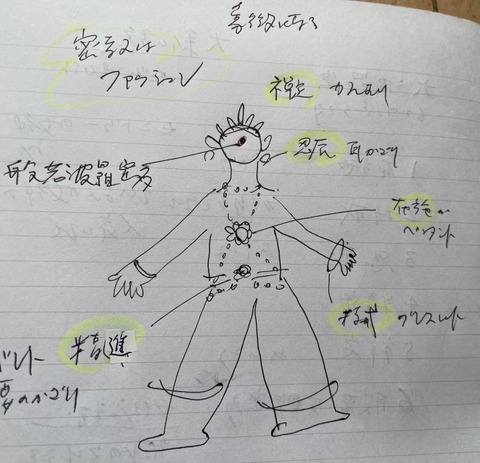 密教又は
ファッション
禅定 かんむり
忍辰 耳かざり
般若波羅蜜多
布施が
ペンダント
持戒 ブレスレット
精進
ベルト
要のかざり